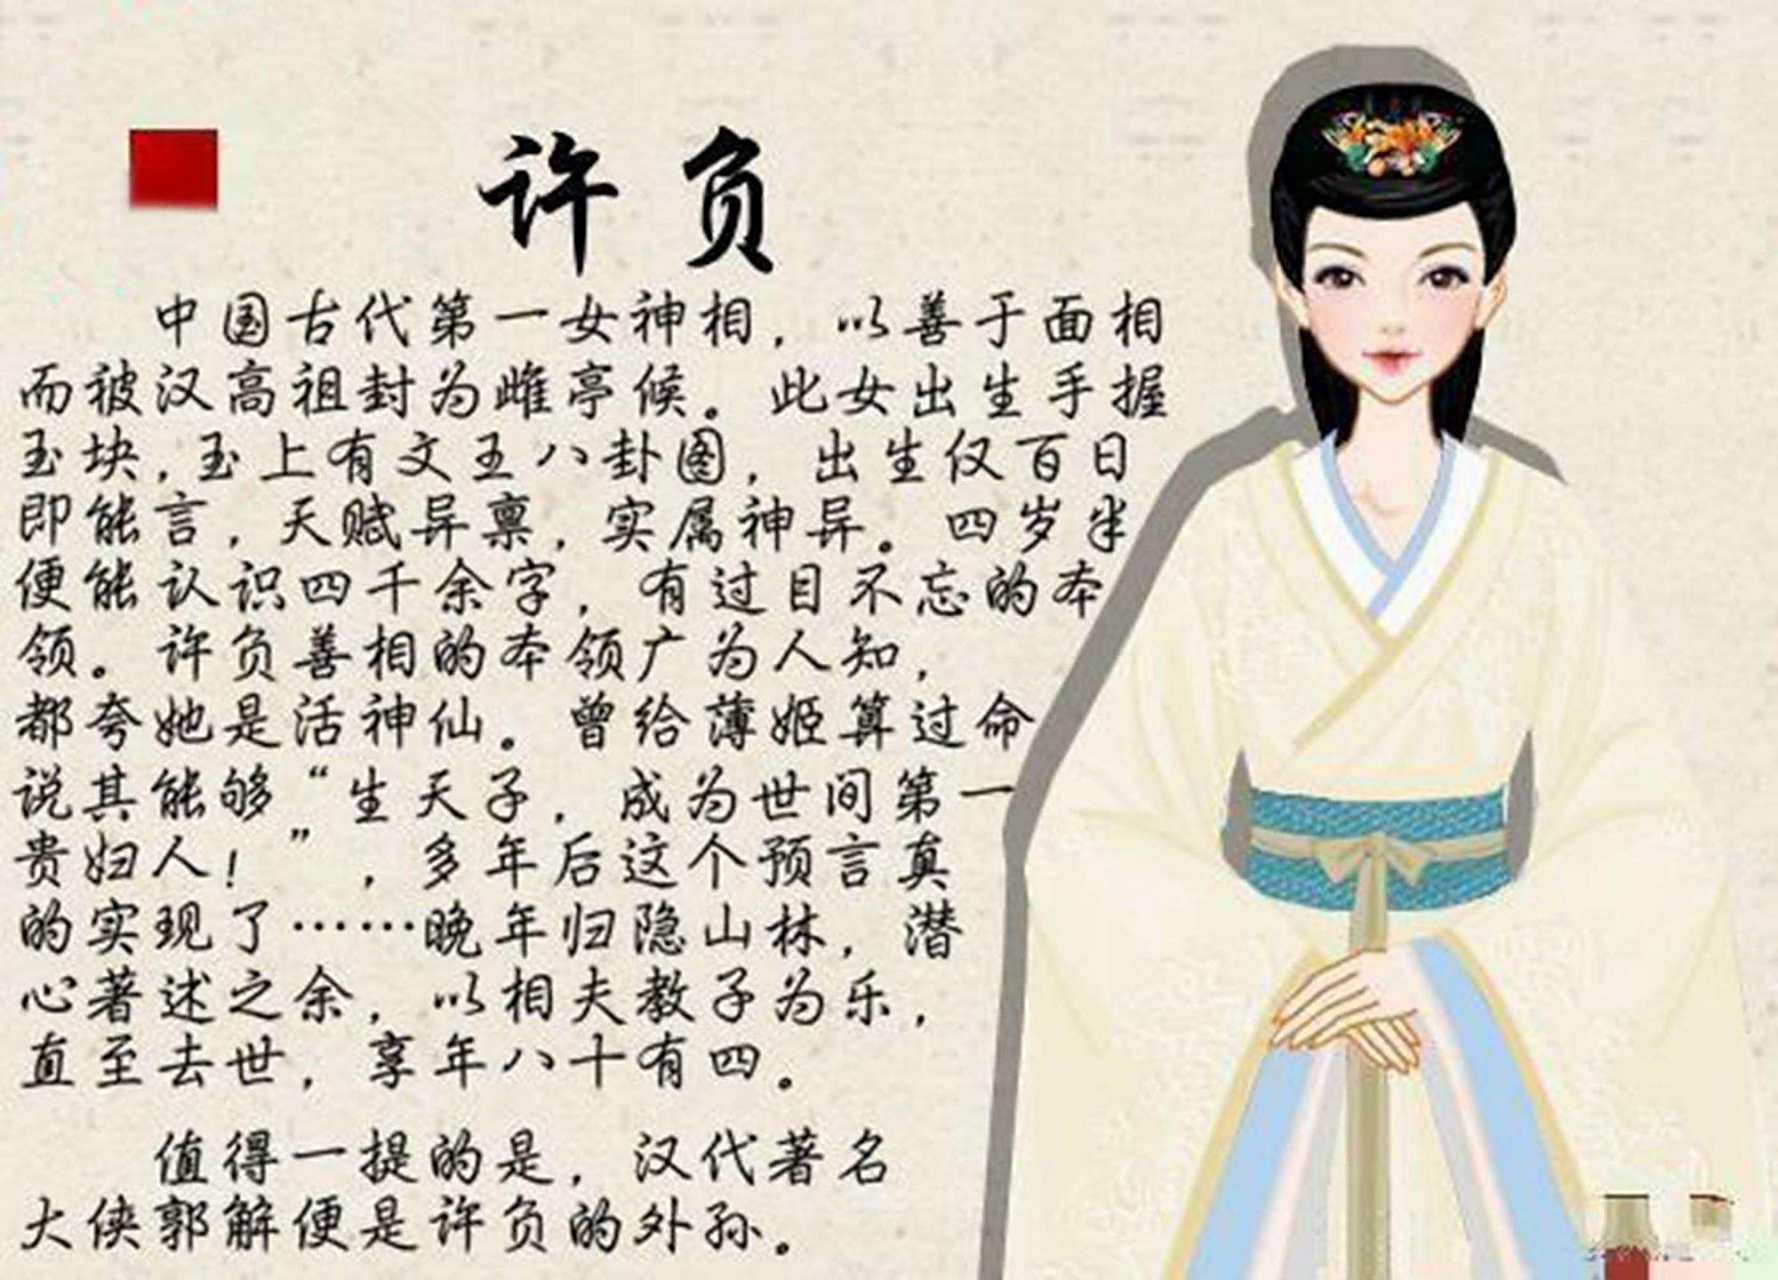 许负
中国古代第一女神相，以善于面相
而被汉高祖封为雌亭候。此女出生手握
玉块，玉上有文王八卦图，出生仅百日
即能言，天赋异禀，实属神异。四岁半
便能认识四千余字，有过目不忘的本
领。许负善相的本领广为人知，
都夸她是活神仙。曾给薄姬算过命
说其能够“生天子，成为世间第一
贵妇人！”，多年后这个预言真
的实现了……晚年归隐山林，潜
心著述之余，以相夫教子为乐，
直至去世，享年八十有四。
值得一提的是，汉代著名
大侠郭解便是许负的外孙。